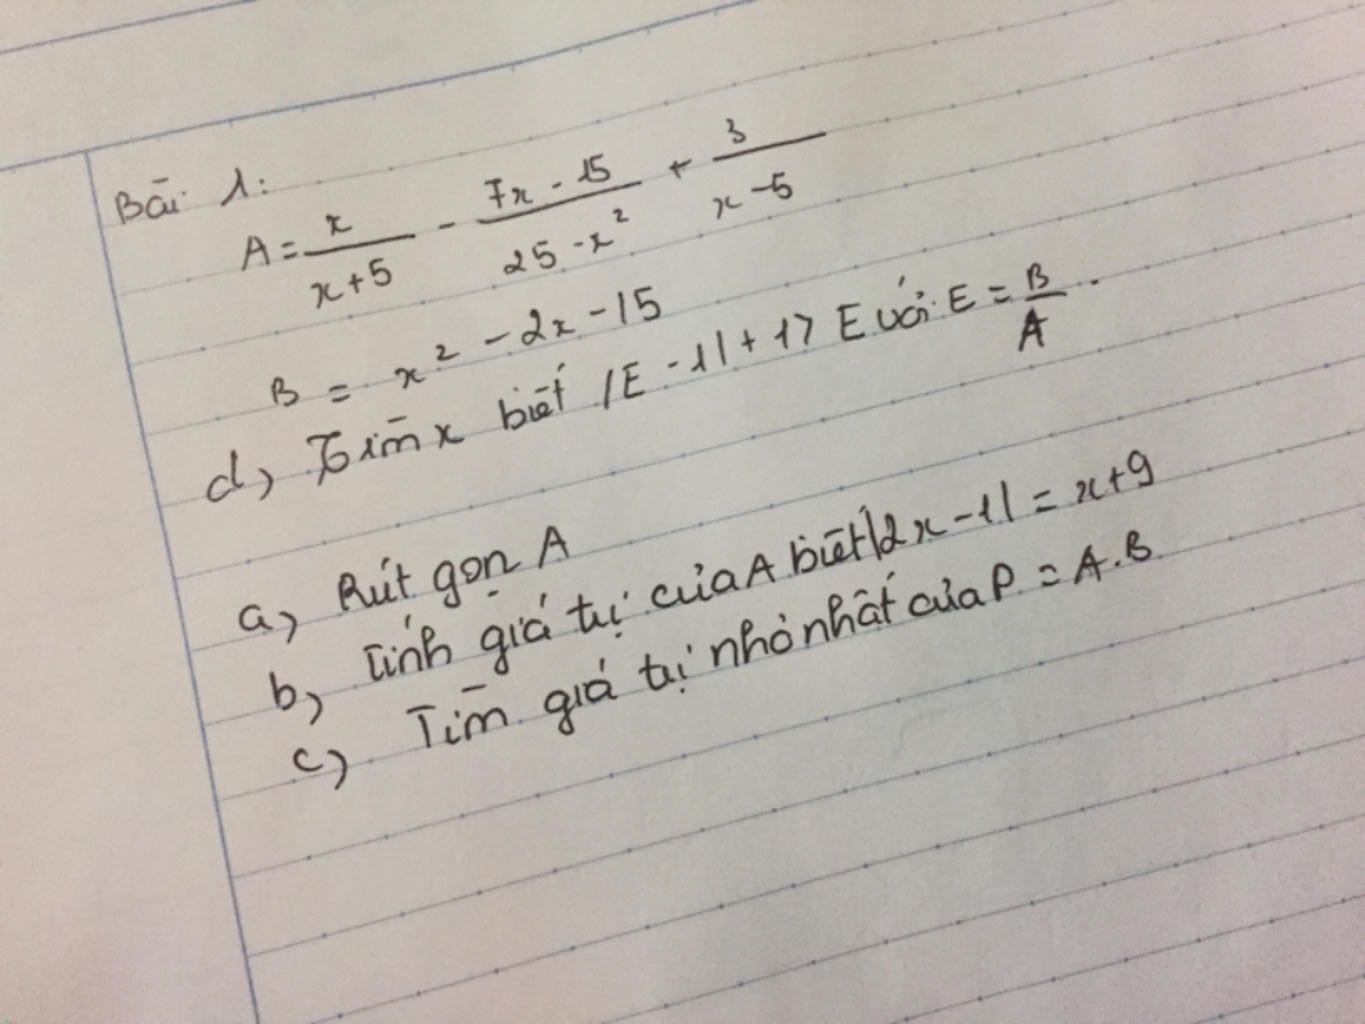 Bài 1:
A = x/(x+5) - (7x - 15)/(25 - x²) + 3/(x - 5)
B = x² - 2x - 15
d, Tìm x biết |E - 1| + 1 > E với E = B/A.
a, Rút gọn A
b, Tính giá trị của A biết |2x - 1| = x + 9
c, Tìm giá trị nhỏ nhất của P = A.B